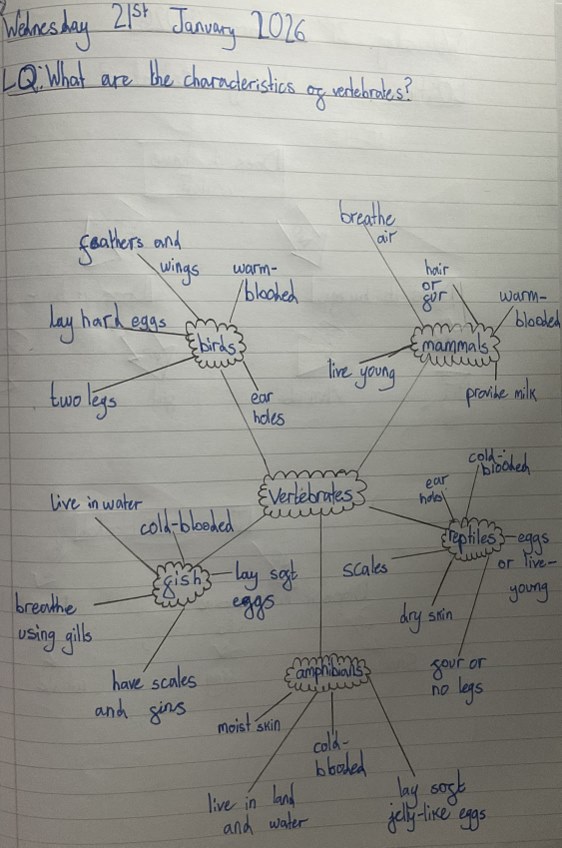 Wednesday 21st January 2026
LQ: What are the characteristics of vertebrates?
breathe
air
feathers and
wings
warm-
blooded
hair
or
fur
warm-
blooded
lay hard eggs
birds
mammals
live young
provide milk
two legs
ear
holes
cold-
blooded
ear
holes
Vertebrates
live in water
cold-blooded
reptiles
eggs
or live-
young
fish
lay soft
eggs
scales
breathe
using gills
dry skin
have scales
and fins
four or
no legs
amphibians
moist skin
cold-
blooded
live in land
and water
lay soft
jelly-like eggs